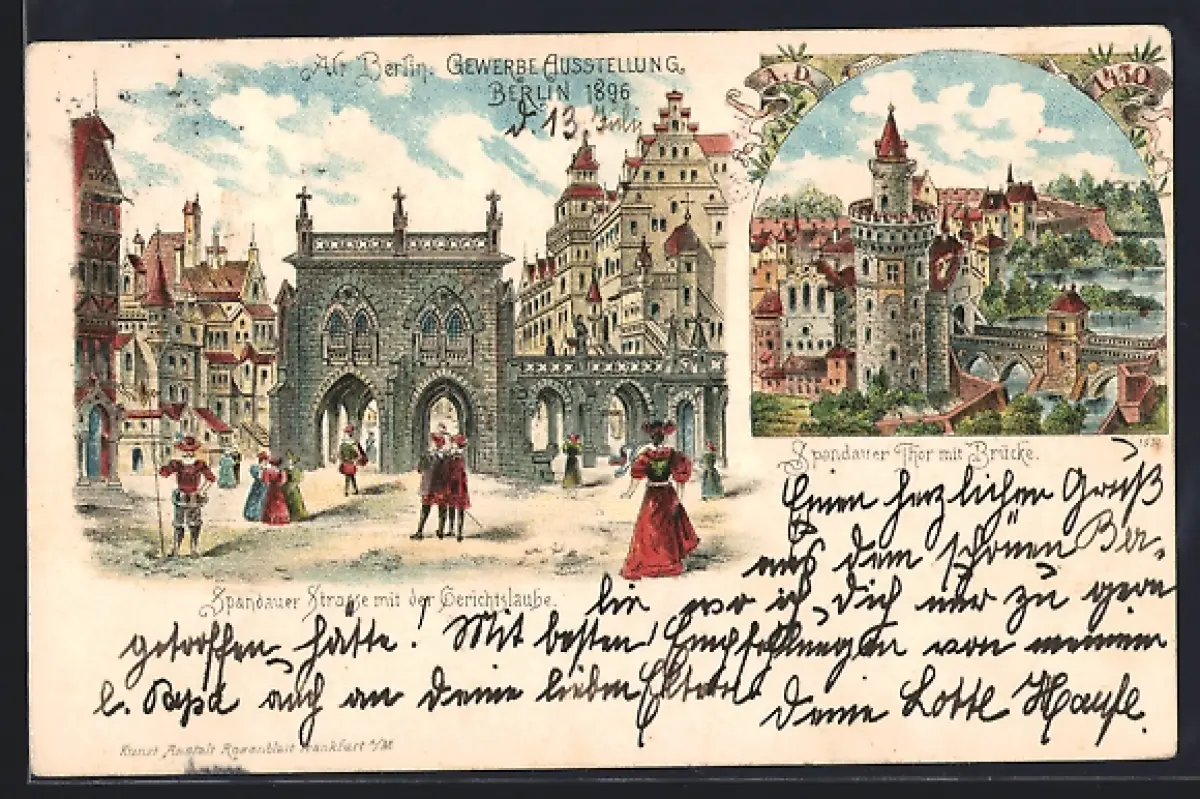 Alt Berlin. GEWERBE AUSSTELLUNG,
BERLIN 1896
d 13. July
A. D. 1430
Spandauer Thor mit Brücke.
Spandauer Strasse mit der Gerichtslaube.
Einen herzlichen Gruß
aus dem schönen Ber-
lin wo ich Dich nur zu gern
getroffen hätte! Mit besten Empfehlungen von meinem
l. Papa auch an Deine lieben Eltern
Deine Lotte
Kunst Anstalt Rosenblatt Frankfurt a/M